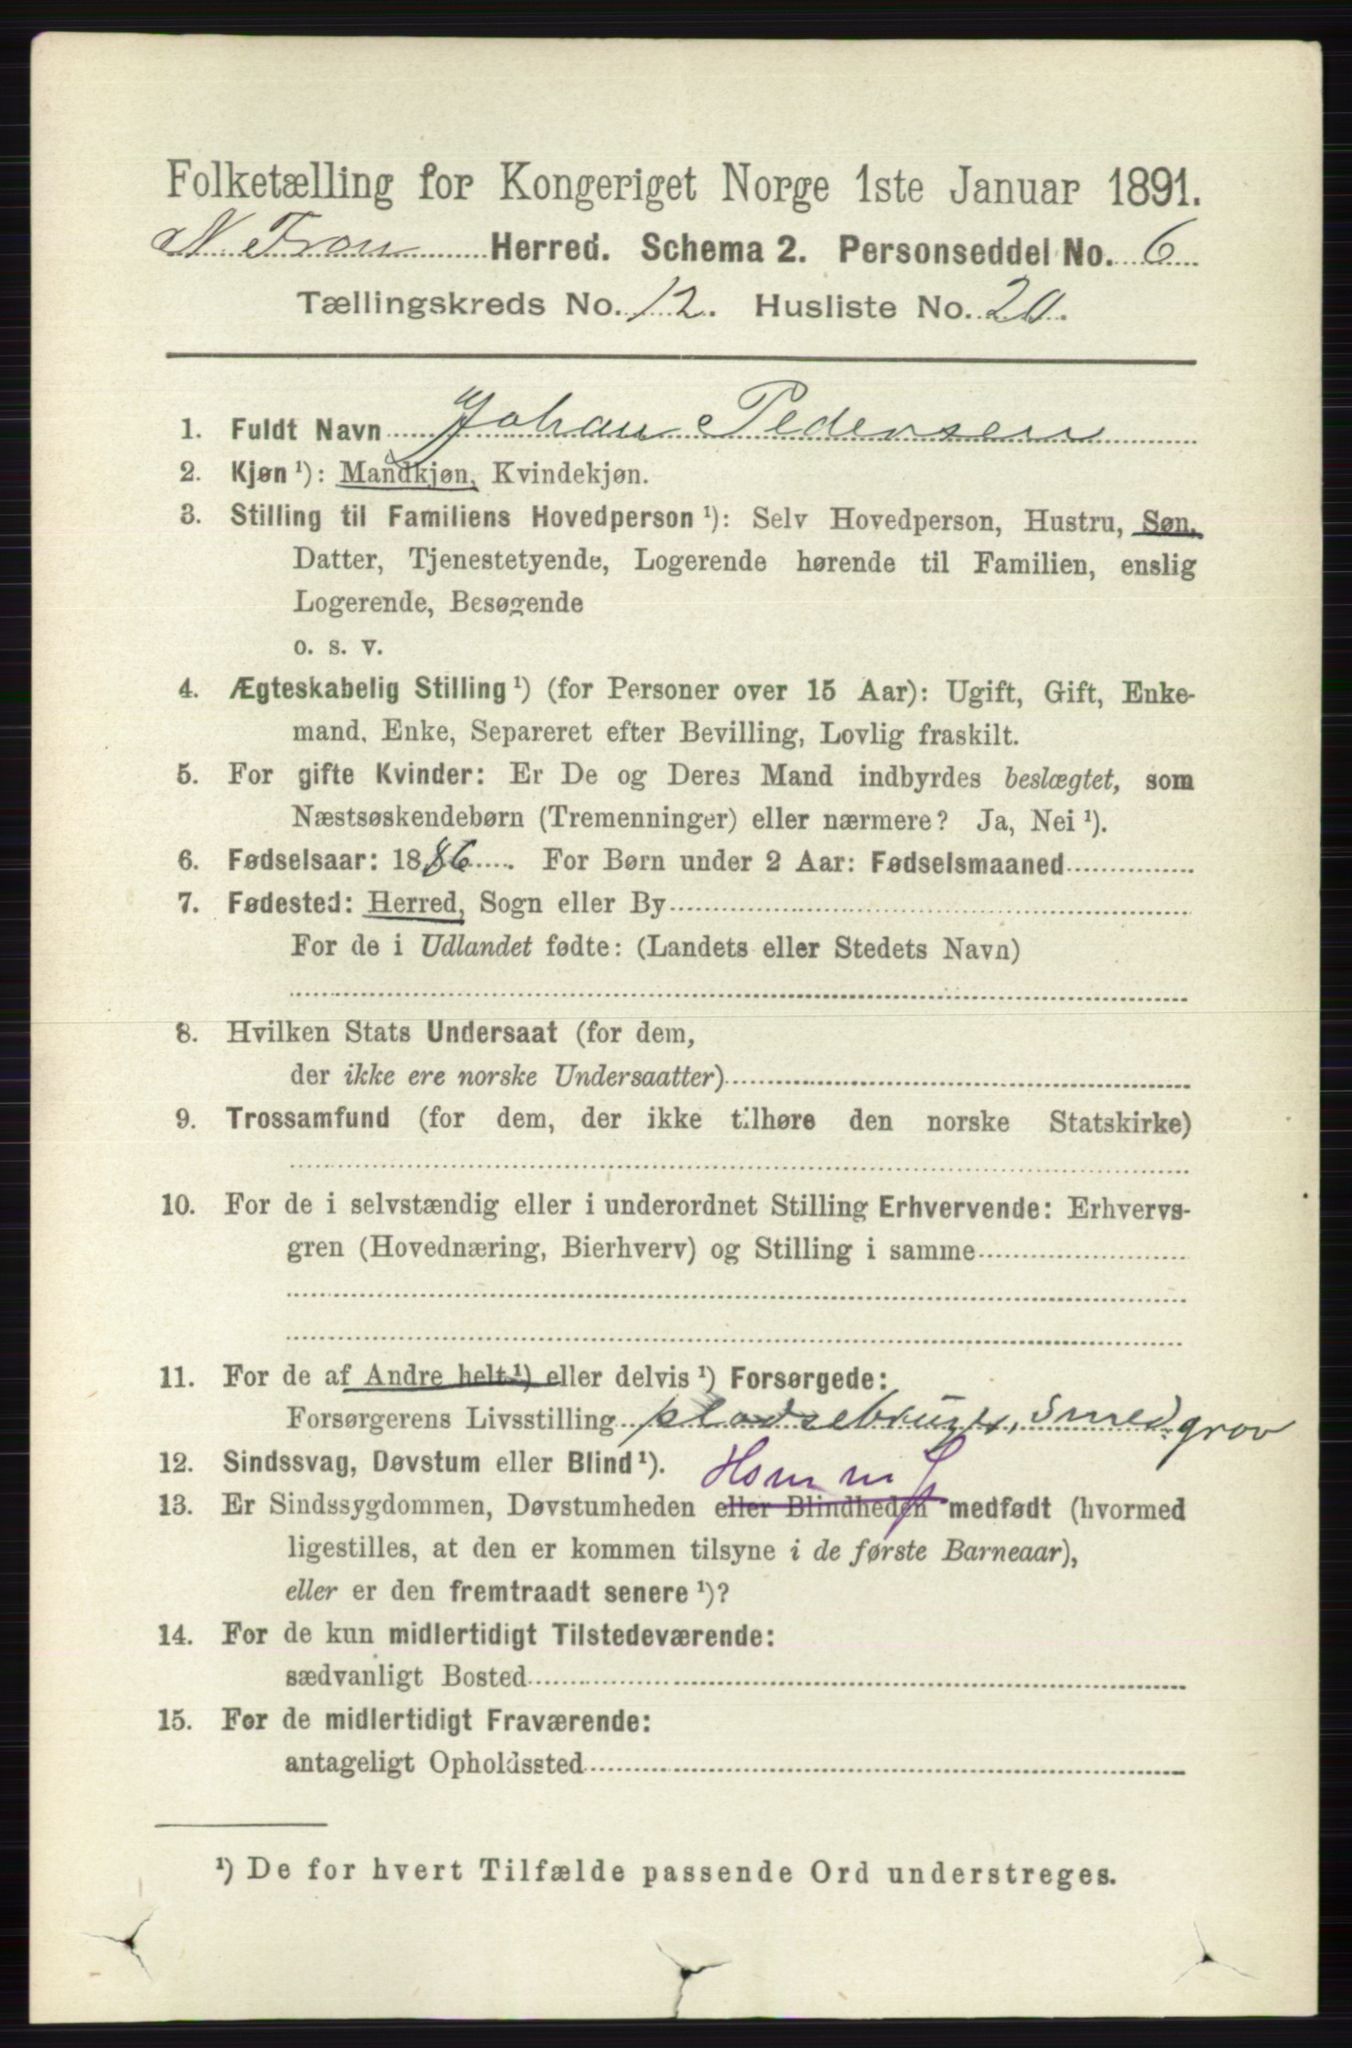 Folketælling for Kongeriget Norge 1ste Januar 1891.
N. Fron Herred. Schema 2. Personseddel No. 6
Tællingskreds No. 12. Husliste No. 20.
1. Fuldt Navn Johan Pedersen
2. Kjøn ¹): Mandkjøn, Kvindekjøn.
3. Stilling til Familiens Hovedperson ¹): Selv Hovedperson, Hustru, Søn,
Datter, Tjenestetyende, Logerende hørende til Familien, enslig
Logerende, Besøgende
o. s. v.
4. Ægteskabelig Stilling ¹) (for Personer over 15 Aar): Ugift, Gift, Enke-
mand, Enke, Separeret efter Bevilling, Lovlig fraskilt.
5. For gifte Kvinder: Er De og Deres Mand indbyrdes beslægtet, som
Næstsøskendebørn (Tremenninger) eller nærmere? Ja, Nei ¹).
6. Fødselsaar: 1886. For Børn under 2 Aar: Fødselsmaaned
7. Fødested: Herred, Sogn eller By
For de i Udlandet fødte: (Landets eller Stedets Navn)
8. Hvilken Stats Undersaat (for dem,
der ikke ere norske Undersaatter)
9. Trossamfund (for dem, der ikke tilhøre den norske Statskirke)
10. For de i selvstændig eller i underordnet Stilling Erhvervende: Erhvervs-
gren (Hovednæring, Bierhverv) og Stilling i samme
11. For de af Andre helt ¹) eller delvis ¹) Forsørgede:
Forsørgerens Livsstilling pladsebruger, Smed grov
12. Sindssvag, Døvstum eller Blind ¹).
13. Er Sindssygdommen, Døvstumheden eller Blindheden medfødt (hvormed
ligestilles, at den er kommen tilsyne i de første Barneaar),
eller er den fremtraadt senere ¹)?
14. For de kun midlertidigt Tilstedeværende:
sædvanligt Bosted
15. For de midlertidigt Fraværende:
antageligt Opholdssted
¹) De for hvert Tilfælde passende Ord understreges.